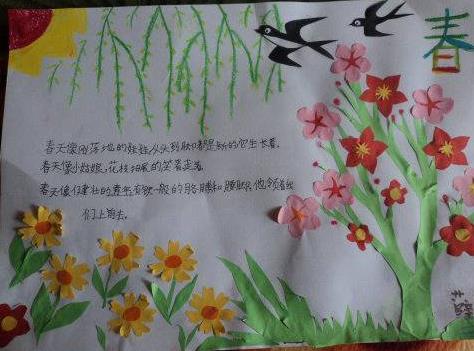 春
春天像刚落地的娃娃从头到脚都是新的它生长着.
春天像小姑娘,花枝招展的笑着走着.
春天像健壮的青年有铁一般的胳膊和腰脚他领着我
们上前去.